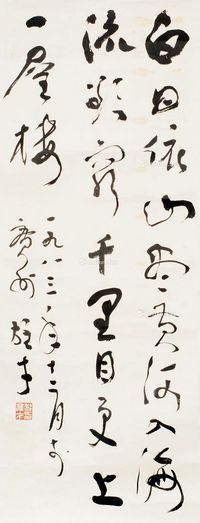 白日依山尽黄河入海
流欲穷千里目更上
一层楼
一九八三年十二月于
广州 雄才